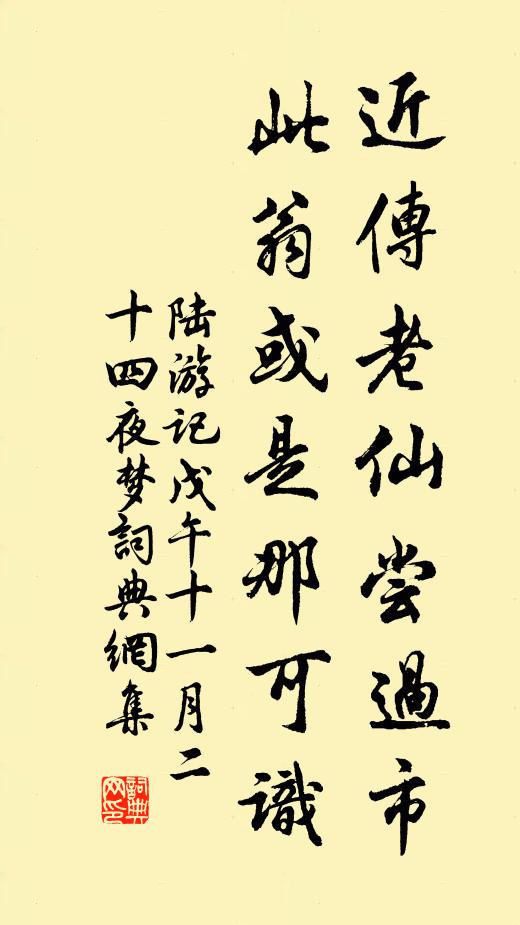 近傳老仙嘗過市
此翁或是那可識
陆游记戊午十一月二
十四夜梦詞典網集
詞典网印